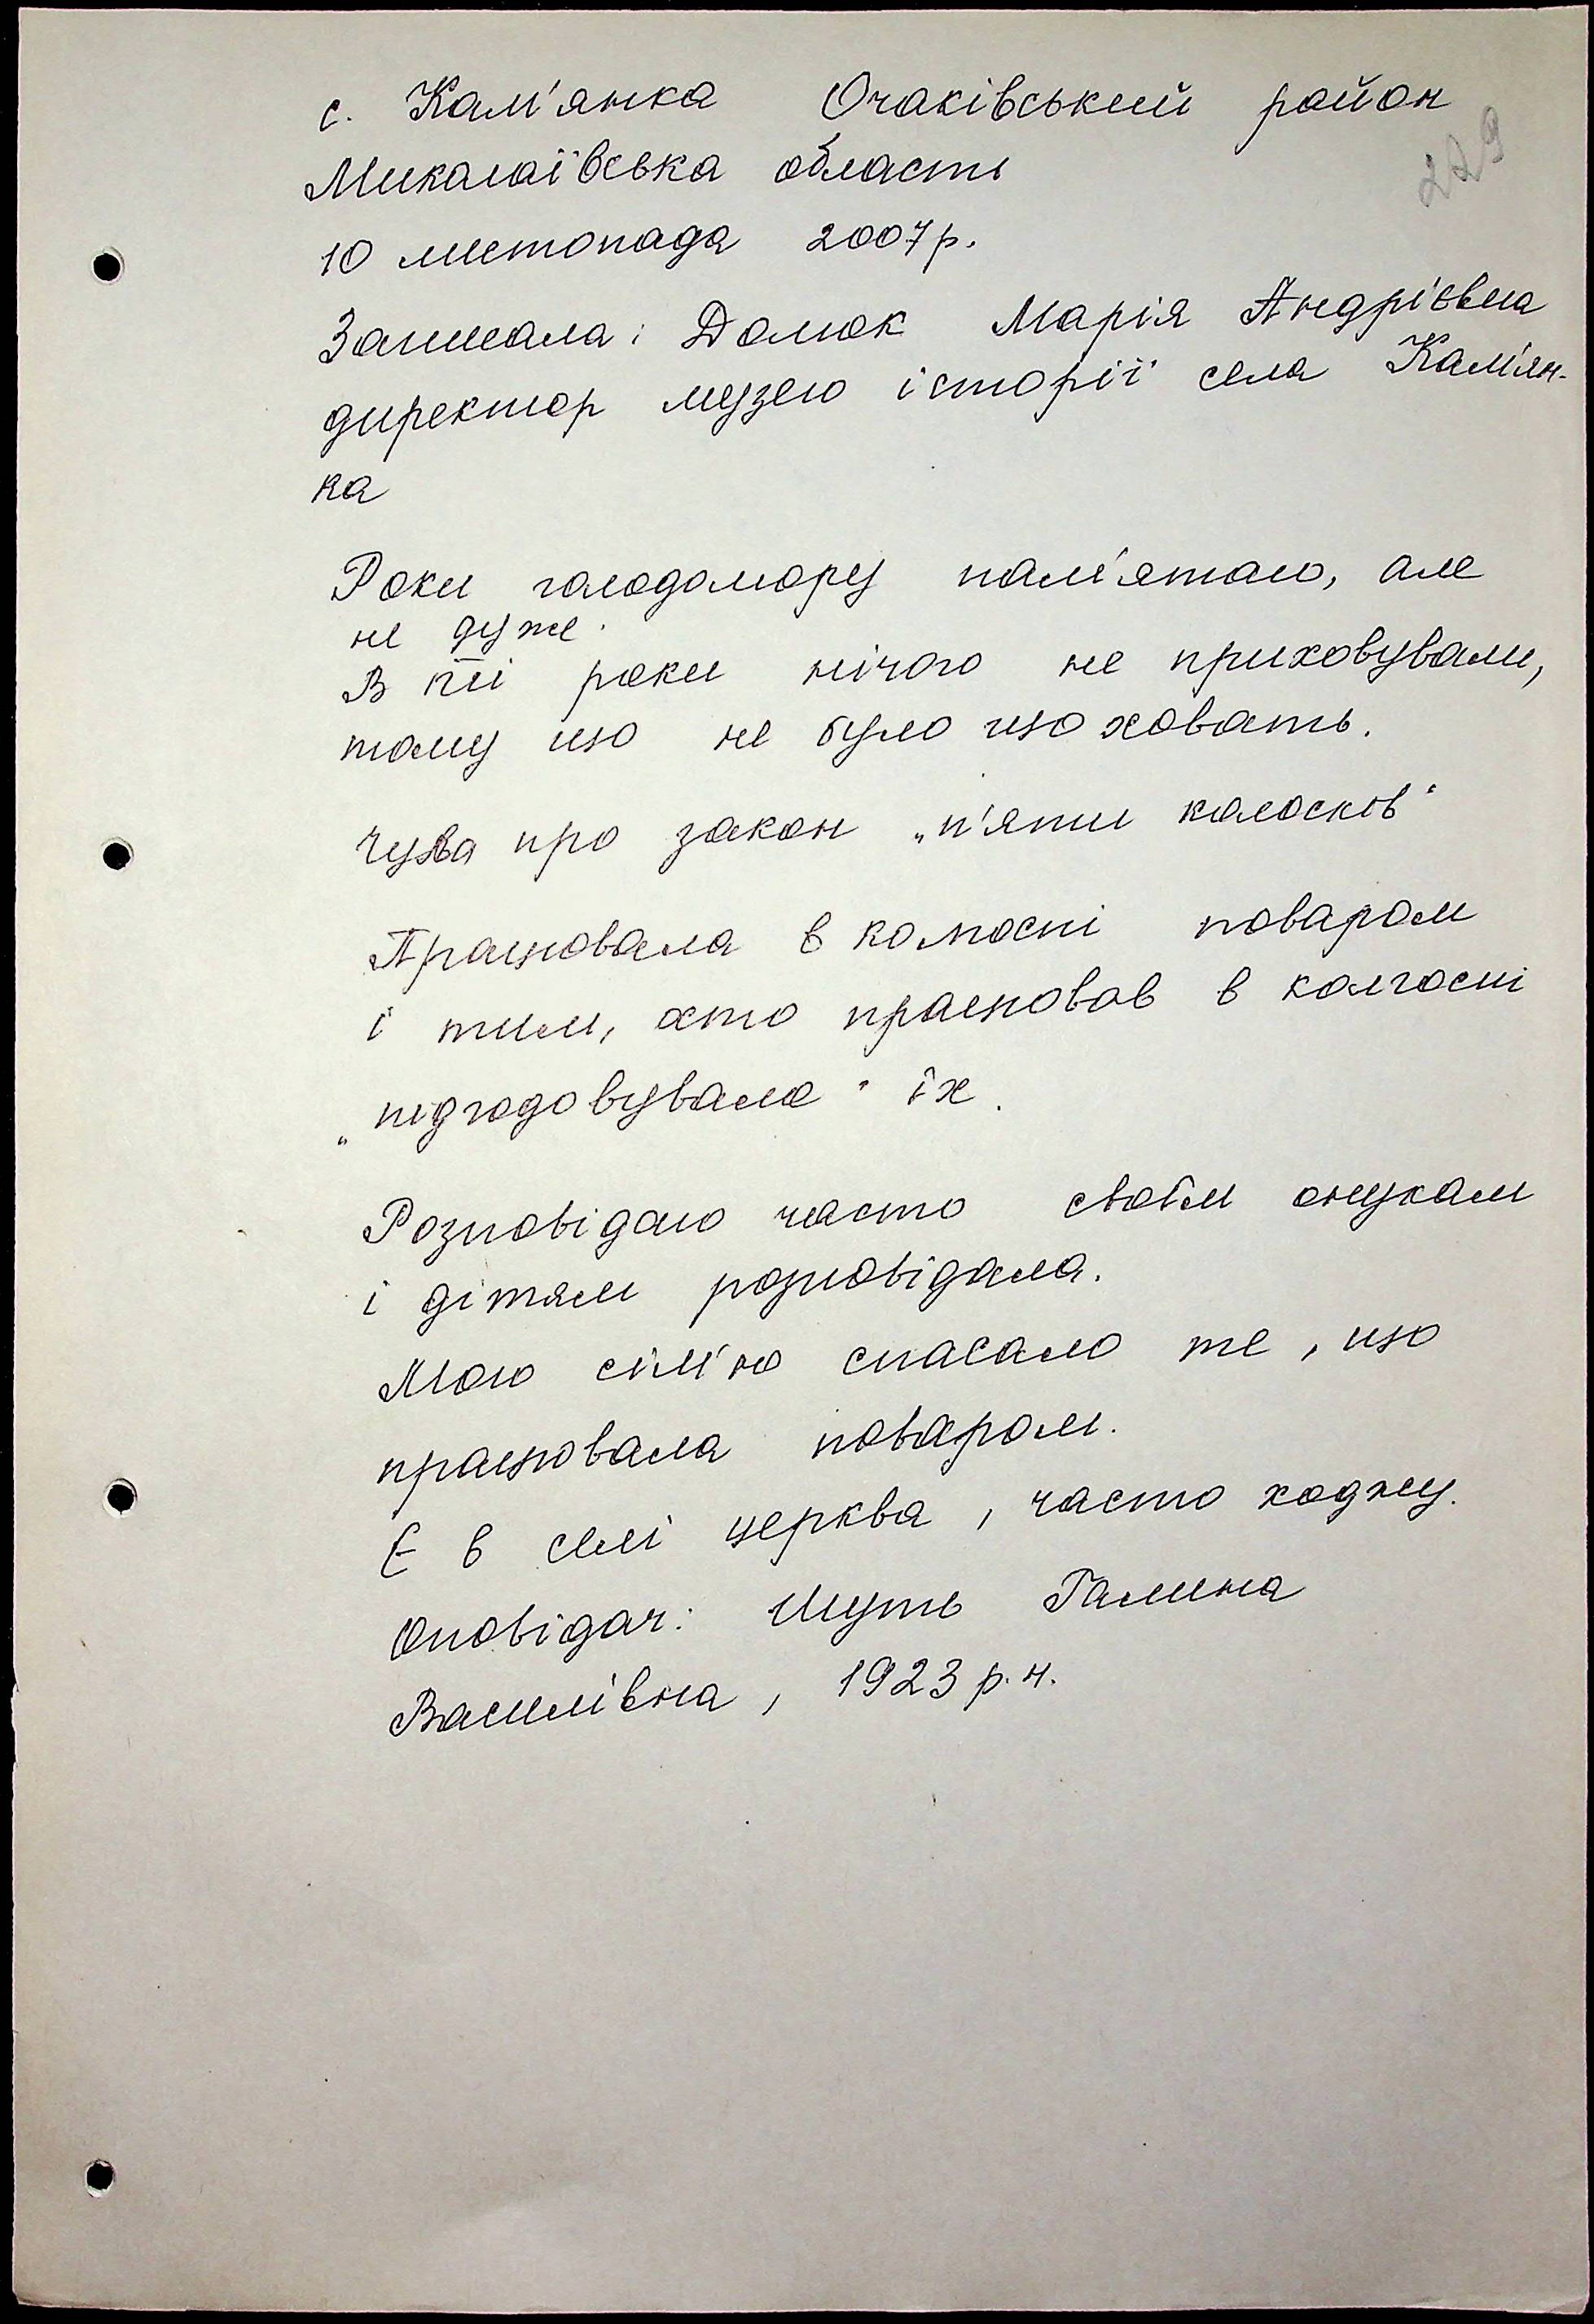 с. Кам'янка Очаківський район
229
Миколаївська область
10 листопада 2007 р.
Записала: Долюк Марія Андріївна
директор музею історії села Кам'ян-
ка
Роки голодомору пам'ятаю, але
не дуже.
В ті роки нічого не приховували,
тому що не було що ховать.
Чула про закон „п'яти колосків"
Працювала в колгоспі поваром
і тим, хто працював в колгоспі
„підгодовувала" їх.
Розповідаю часто своїм онукам
і дітям розповідала.
Мою сім'ю спасало те, що
працювала поваром.
Є в селі церква, часто ходжу.
Оповідач: Шуть Галина
Василівна, 1923 р.н.